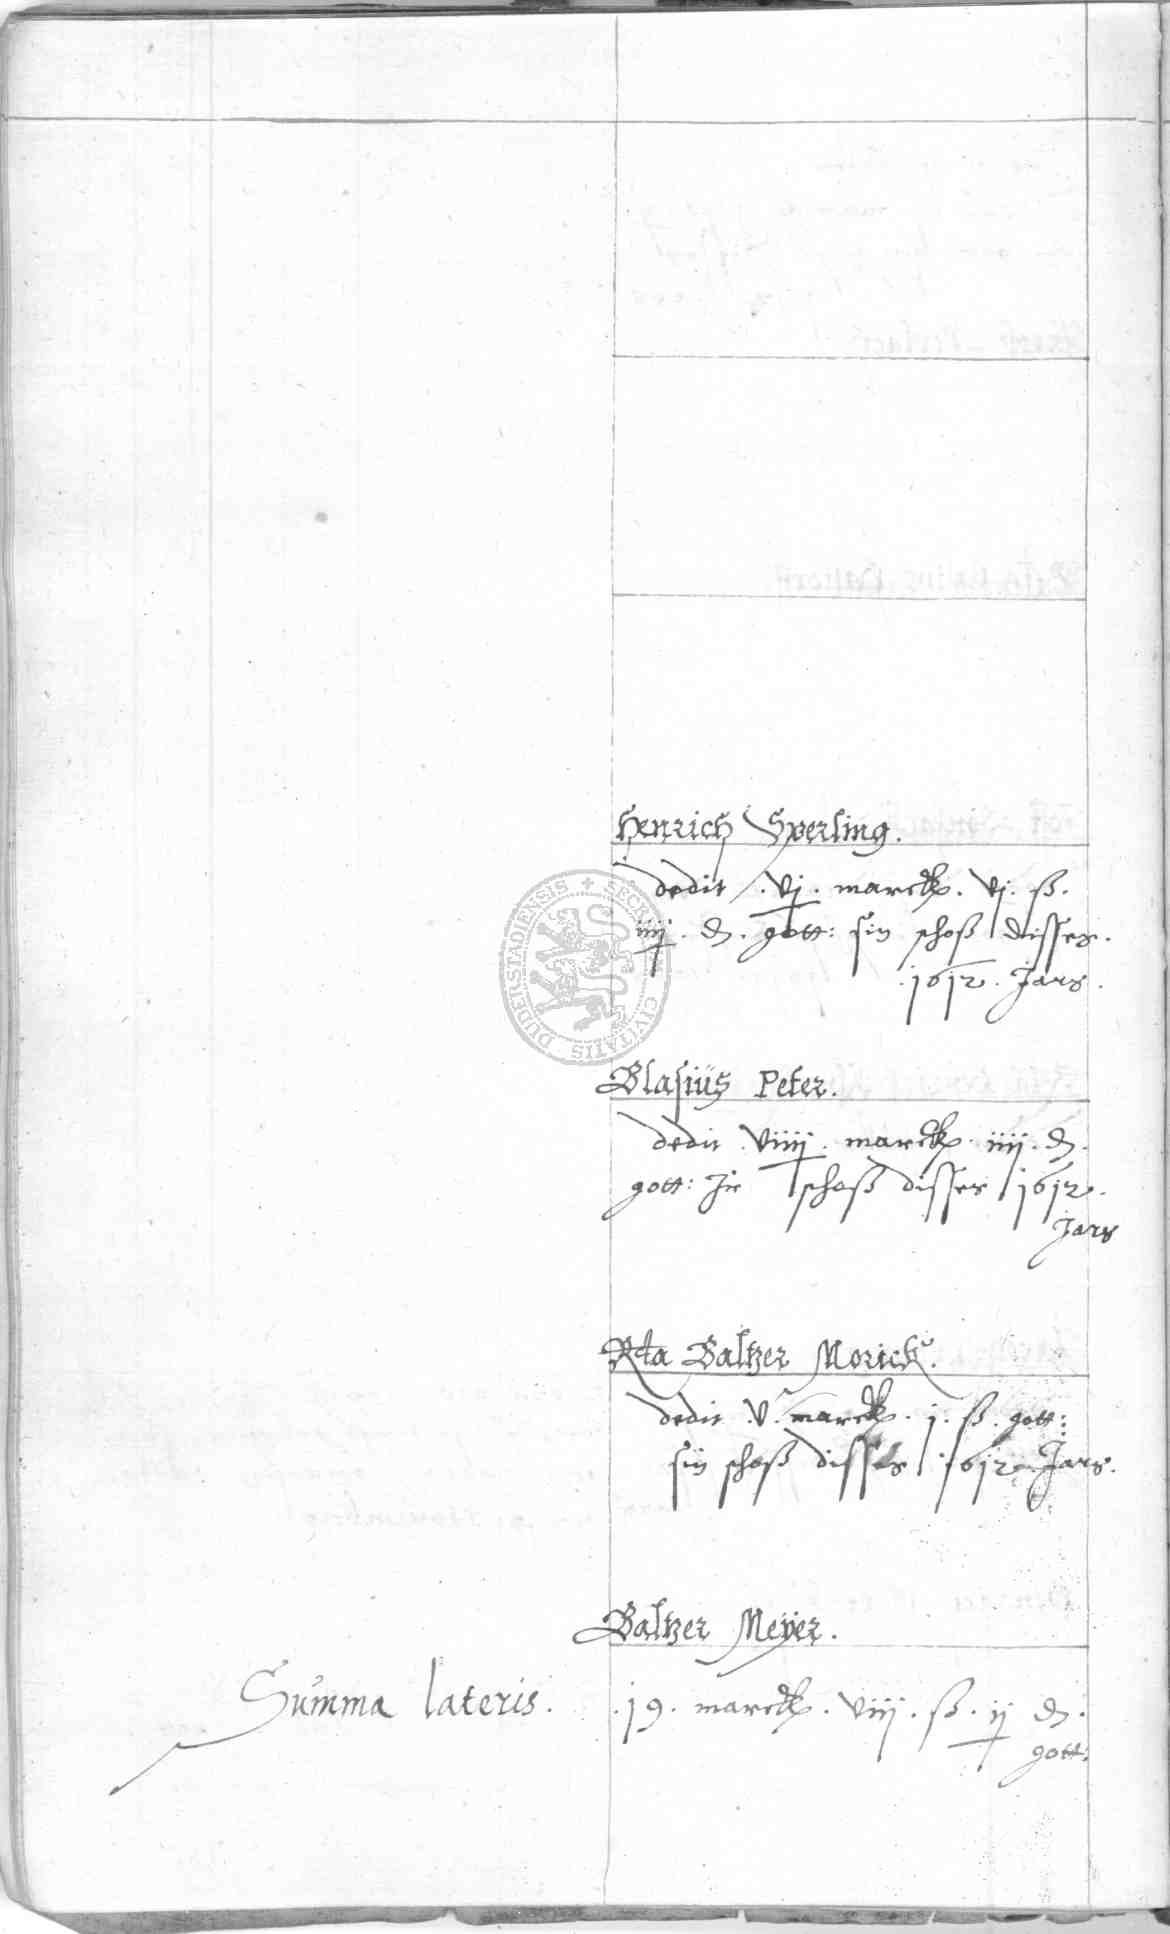 Henrich Sperling.
dedit . vj . marck . vj . ß .
iiij . d . gott: sin schoß disses .
. 1612 . Jars .
Blasiüs Peter.
dedit . viiij . marck . iiij . d .
gott: Jr schoß disses 1612 .
Jars
Rta Baltzer Morick .
dedit . v . marck . j . ß . gott:
sin schoß disses 1612 . Jars .
Baltzer Meÿer .
Summa lateris . . 19 . marck . viiij . ß . ij d .
gott:
SECRETUM CIVITATIS DUDERSTADIENSIS